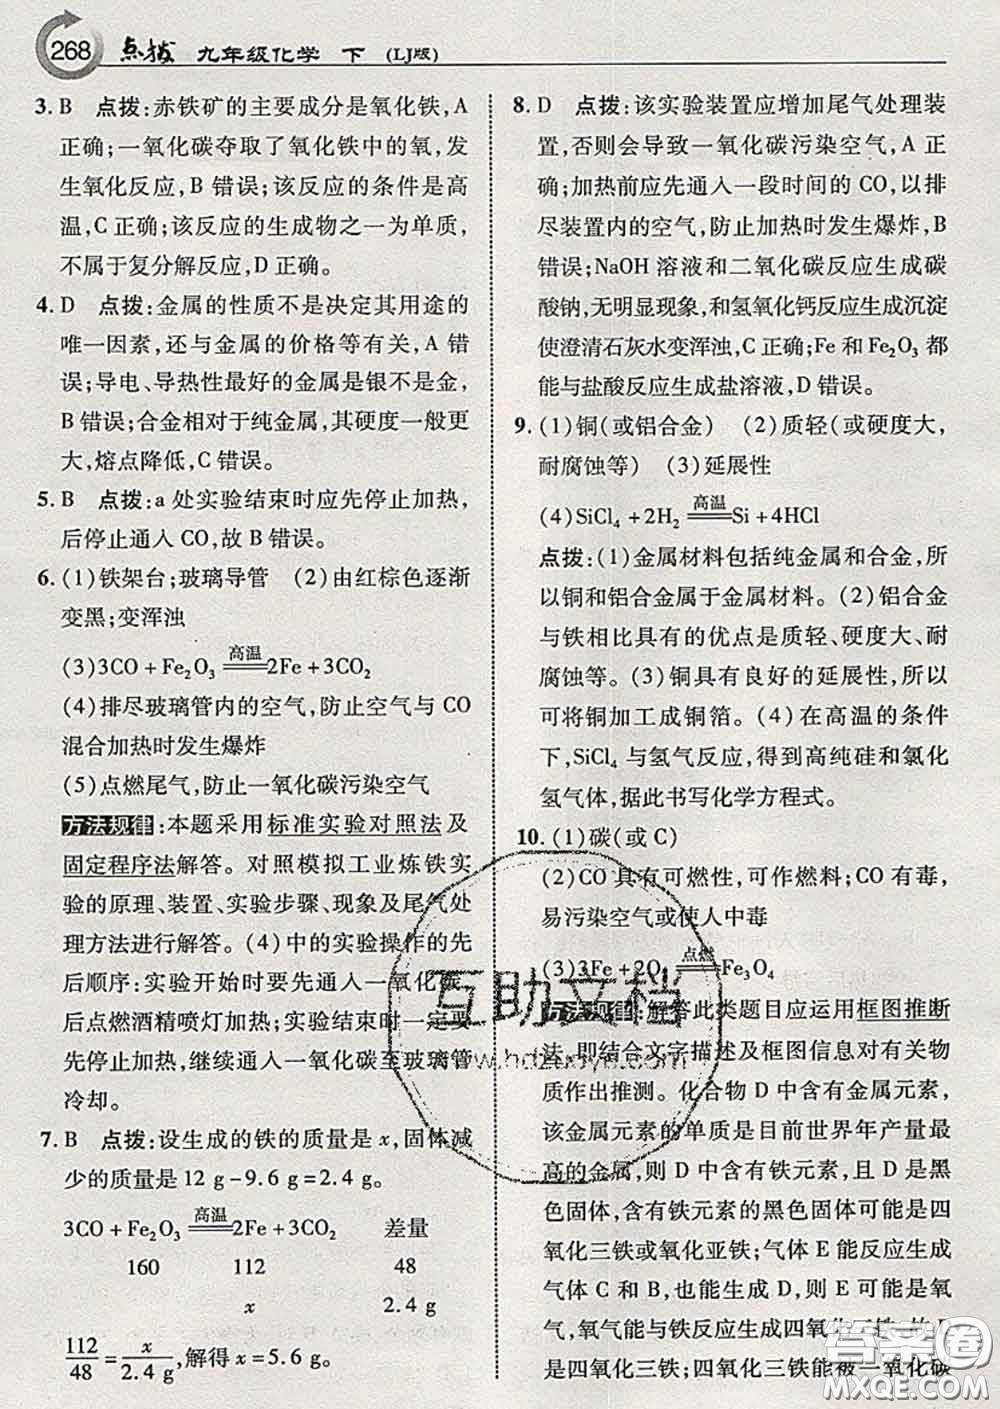 268 点拨 九年级化学 下 (LJ版)
3. B 点拨:赤铁矿的主要成分是氧化铁,A
正确;一氧化碳夺取了氧化铁中的氧,发
生氧化反应,B 错误;该反应的条件是高
温,C 正确;该反应的生成物之一为单质,
不属于复分解反应,D 正确。
4. D 点拨:金属的性质不是决定其用途的
唯一因素,还与金属的价格等有关,A 错
误;导电、导热性最好的金属是银不是金,
B 错误;合金相对于纯金属,其硬度一般更
大,熔点降低,C 错误。
5. B 点拨:a 处实验结束时应先停止加热,
后停止通入 CO,故 B 错误。
6. (1)铁架台;玻璃导管 (2)由红棕色逐渐
变黑;变浑浊
(3)3CO+Fe₂O₃ 高温 2Fe+3CO₂
(4)排尽玻璃管内的空气,防止空气与 CO
混合加热时发生爆炸
(5)点燃尾气,防止一氧化碳污染空气
方法规律:本题采用标准实验对照法及
固定程序法解答。对照模拟工业炼铁实
验的原理、装置、实验步骤、现象及尾气处
理方法进行解答。(4)中的实验操作的先
后顺序:实验开始时要先通入一氧化碳,
后点燃酒精喷灯加热;实验结束时一定要
先停止加热,继续通入一氧化碳至玻璃管
冷却。
7. B 点拨:设生成的铁的质量是 x,固体减
少的质量是 12 g-9.6 g=2.4 g。
3CO+Fe₂O₃ 高温 2Fe+3CO₂ 差量
160 112 48
x 2.4 g
112/48=x/2.4 g,解得 x=5.6 g。
8. D 点拨:该实验装置应增加尾气处理装
置,否则会导致一氧化碳污染空气,A 正
确;加热前应先通入一段时间的 CO,以排
尽装置内的空气,防止加热时发生爆炸,B
错误;NaOH 溶液和二氧化碳反应生成碳
酸钠,无明显现象,和氢氧化钙反应生成沉淀
使澄清石灰水变浑浊,C 正确;Fe 和 Fe₂O₃ 都
能与盐酸反应生成盐溶液,D 错误。
9. (1)铜(或铝合金) (2)质轻(或硬度大,
耐腐蚀等) (3)延展性
(4)SiCl₄+2H₂ 高温 Si+4HCl
点拨:(1)金属材料包括纯金属和合金,所
以铜和铝合金属于金属材料。(2)铝合金
与铁相比具有的优点是质轻、硬度大、耐
腐蚀等。(3)铜具有良好的延展性,所以
可将铜加工成铜箔。(4)在高温的条件
下,SiCl₄ 与氢气反应,得到高纯硅和氯化
氢气体,据此书写化学方程式。
10. (1)碳(或 C)
(2)CO 具有可燃性,可作燃料;CO 有毒,
易污染空气或使人中毒
(3)3Fe+2O₂ 点燃 Fe₃O₄
方法规律:解答此类题目应运用框图推断
法,即结合文字描述及框图信息对有关物
质作出推测。化合物 D 中含有金属元素,
该金属元素的单质是目前世界年产量最
高的金属,则 D 中含有铁元素,D 是黑色
固体,含有铁元素的黑色固体可能是四
氧化三铁或氧化亚铁;气体 E 能反应生成
气体 C 和 B,也能生成 D,则 E 可能是氧
气,氧气能与铁反应生成四氧化三铁,故 D
是四氧化三铁;四氧化三铁能被一氧化碳
互助文档
www.hdzuoye.com
答案圈
MXQE.COM